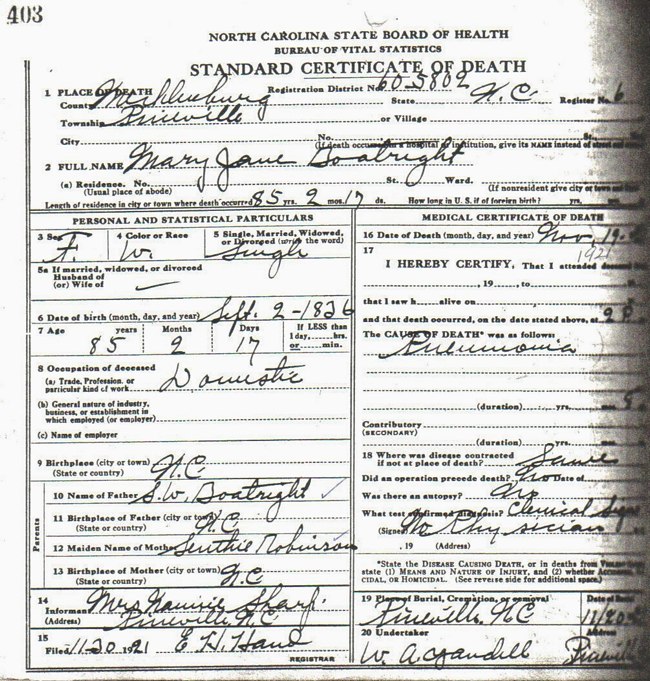 403
NORTH CAROLINA STATE BOARD OF HEALTH
BUREAU OF VITAL STATISTICS
STANDARD CERTIFICATE OF DEATH
1 PLACE OF DEATH Registration District No. 60-5802
County Mecklenburg State N.C. Register No. 6
Township Pineville or Village
City No. St.
(If death occurred in a hospital or institution, give its NAME instead of street and
2 FULL NAME Mary Jane Boatright
(a) Residence. No. St. Ward.
(Usual place of abode) (If nonresident give city or town and
Length of residence in city or town where death occurred 85 yrs. 2 mos. 17 ds. How long in U.S. if of foreign birth? yrs.
PERSONAL AND STATISTICAL PARTICULARS
3 Sex 4 Color or Race 5 Single, Married, Widowed,
or Divorced (write the word)
F. W. Single
5a If married, widowed, or divorced
Husband of
(or) Wife of
6 Date of birth (month, day, and year) Sept. 2-1836
7 Age years Months Days If LESS than
1 day, hrs.
85 2 17 or min.
8 Occupation of deceased
(a) Trade, Profession, or
particular kind of work Domestic
(b) General nature of industry,
business, or establishment in
which employed (or employer)
(c) Name of employer
9 Birthplace (city or town) N.C.
(State or country)
Parents
10 Name of Father S.W. Boatright
11 Birthplace of Father (city or town) N.C.
(State or country)
12 Maiden Name of Mother Robinson
13 Birthplace of Mother (city or town) N.C.
(State or country)
14 Informant Mrs Sharp
(Address) Pineville N.C.
15
Filed 11-20 1921 E H. Hand
REGISTRAR
MEDICAL CERTIFICATE OF DEATH
16 Date of Death (month, day, and year) Nov. 19
1921
17
I HEREBY CERTIFY, That I attended deceased
, 19 , to
that I saw h alive on
and that death occurred, on the date stated above, at 2
The CAUSE OF DEATH* was as follows:
Pneumonia
(duration) yrs. mos. 5
Contributory
(SECONDARY)
(duration) yrs.
18 Where was disease contracted
if not at place of death? Same
Did an operation precede death? No Date of
Was there an autopsy? No
What test confirmed diagnosis? Clenical Signs
(Signed) No Physician
, 19 (Address)
*State the DISEASE CAUSING DEATH, or in deaths from
state (1) MEANS AND NATURE OF INJURY, and (2) whether
CIDAL, or HOMICIDAL. (See reverse side for additional space.)
19 Place of Burial, Cremation, or removal Date of Burial
Pineville N.C. 11/20
20 Undertaker Address
W. A. Yandell Pineville